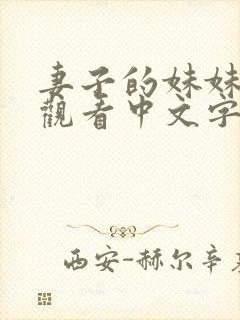 妻子的妹妹
觀看中文字
西安-赫尔辛